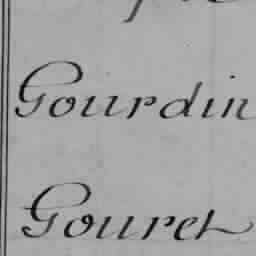 Gourdin
Gouret